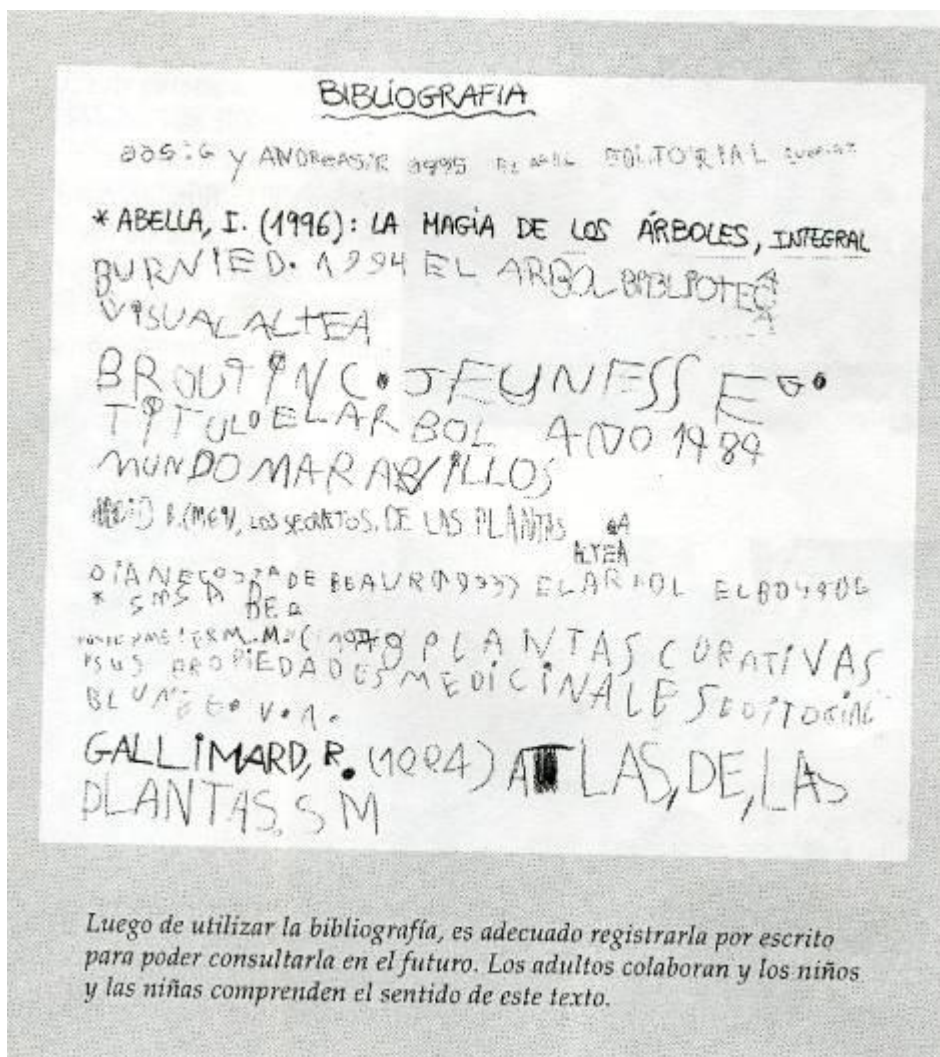 BIBLIOGRAFIA
Y ANDREAS.R 1995 EDITORIAL
* ABELLA, I. (1996): LA MAGIA DE LOS ÁRBOLES, INTEGRAL
BURNIE D. 1994 EL ARBOL BIBLIOTECA
VISUAL ALTEA
BROUTIN C. JEUNESSE G.
TITULO EL ARBOL AÑO 1989
MUNDO MARAVILLOS
LOS SECRETOS, DE LAS PLANTAS
ALTEA
DE BEAUR EL ARBOL
* SMS A D
DE
M. PLANTAS CURATIVAS
SUS PROPIEDADES MEDICINALES EDITORIAL
BLUME
GALLIMARD, R. (1994) ATLAS, DE, LAS
PLANTAS, SM
Luego de utilizar la bibliografía, es adecuado registrarla por escrito
para poder consultarla en el futuro. Los adultos colaboran y los niños
y las niñas comprenden el sentido de este texto.